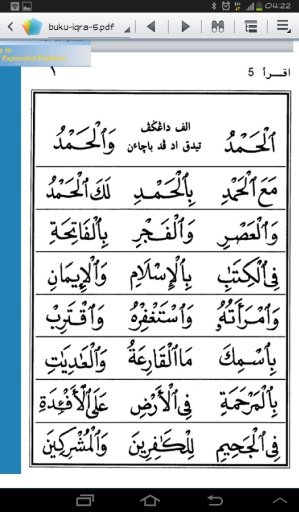 04:22
buku-iqra-5.pdf
e to
Expanded Features
اقرأ 5
١
اَلْحَمْدُ
الف داڠكڤ
تيدق اد ڤد باچاءن
وَالْحَمْدُ
مَعَ الْحَمْدِ بِالْحَمْدِ لَكَ الْحَمْدُ
وَالْعَصْرِ وَالْفَجْرِ بِالْفَاتِحَةِ
فِى الْكِتٰبِ بِالْإِسْلَامِ وَالْإِيْمَانِ
وَامْرَأَتُهُ وَاسْتَغْفِرْهُ وَاقْتَرِبْ
بِاسْمِكَ مَاالْقَارِعَةُ وَالْعٰدِيٰتِ
بِالْمَرْحَمَةِ فِى الْأَرْضِ عَلَى الْأَفْئِدَةِ
فِى الْجَحِيْمِ لِلْكَافِرِيْنَ وَالْمُشْرِكِيْنَ